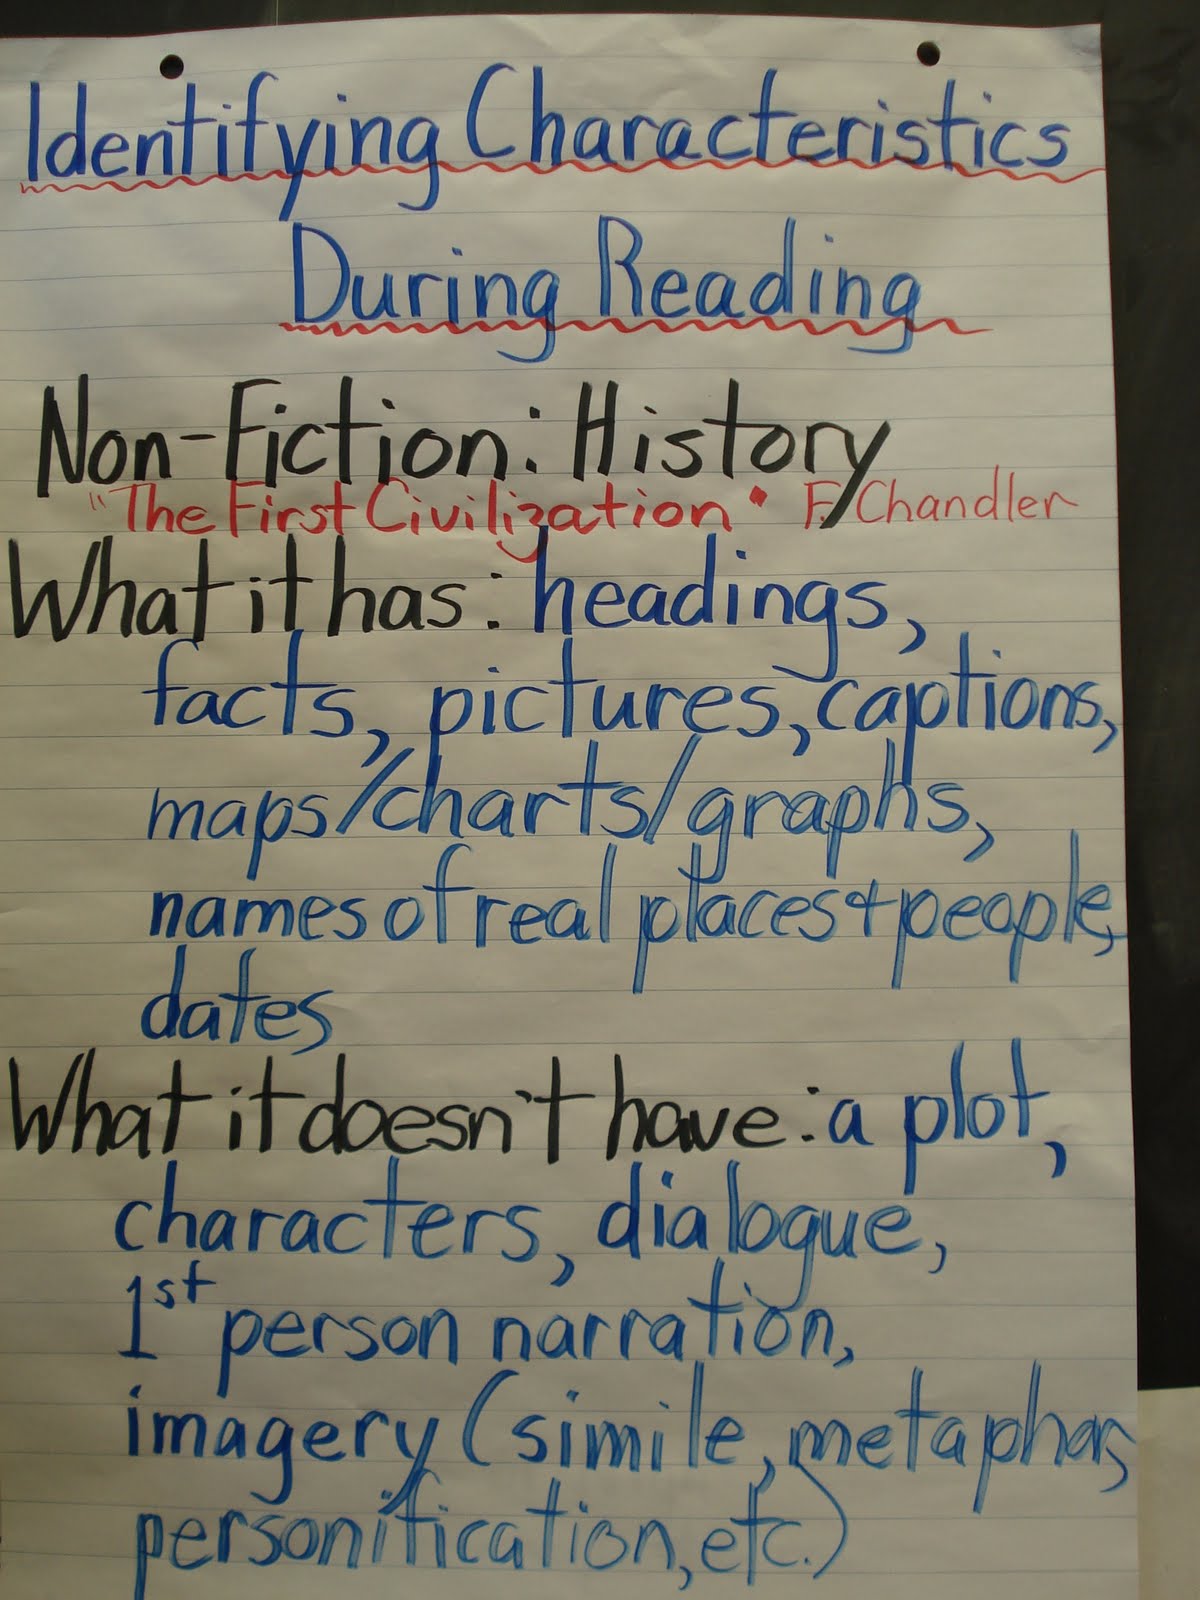 Identifying Characteristics
During Reading
Non-Fiction: History
"The First Civilization" F. Chandler
What it has: headings,
facts, pictures, captions,
maps/charts/graphs,
names of real places + people,
dates
What it doesn't have: a plot,
characters, dialogue,
1st person narration,
imagery (simile, metaphor,
personification, etc.)